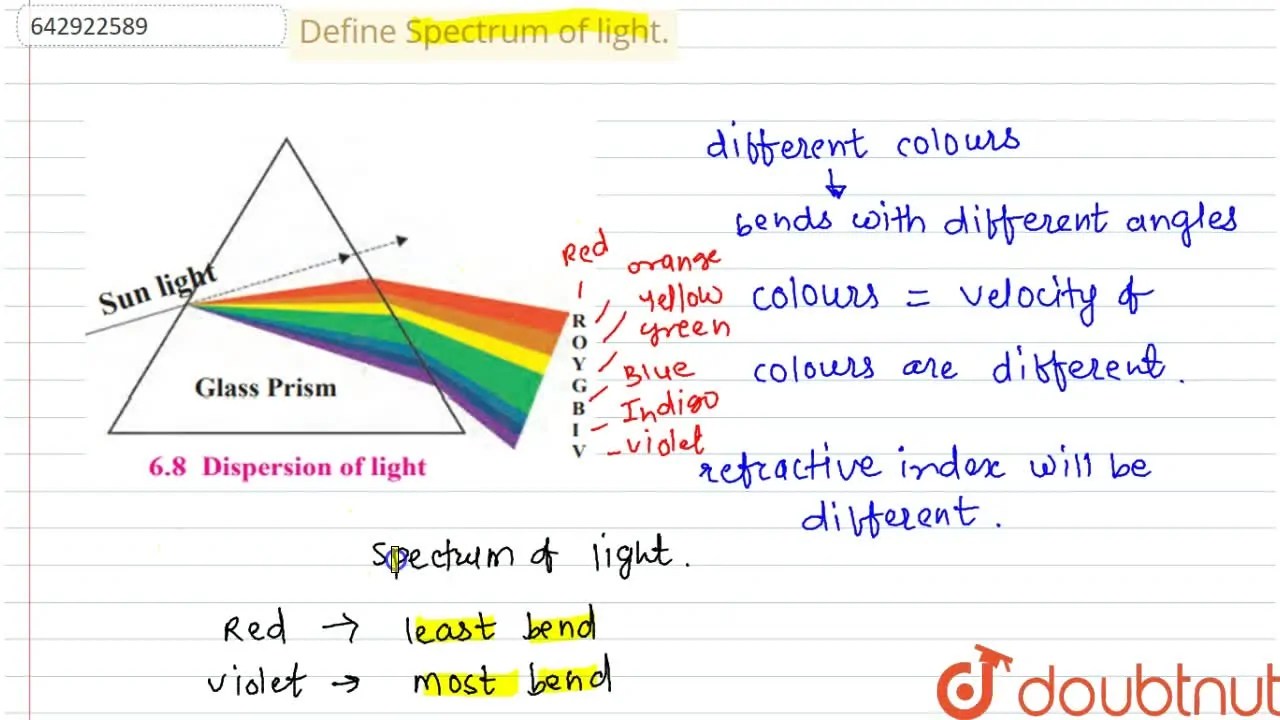 642922589
Define Spectrum of light.
different colours
bends with different angles
colours = velocity of
colours are different.
refractive index will be
different.
Sun light
Glass Prism
Red
orange
Yellow
green
Blue
Indigo
violet
R
O
Y
G
B
I
V
6.8 Dispersion of light
Spectrum of light.
Red → least bend
violet → most bend
doubtnut